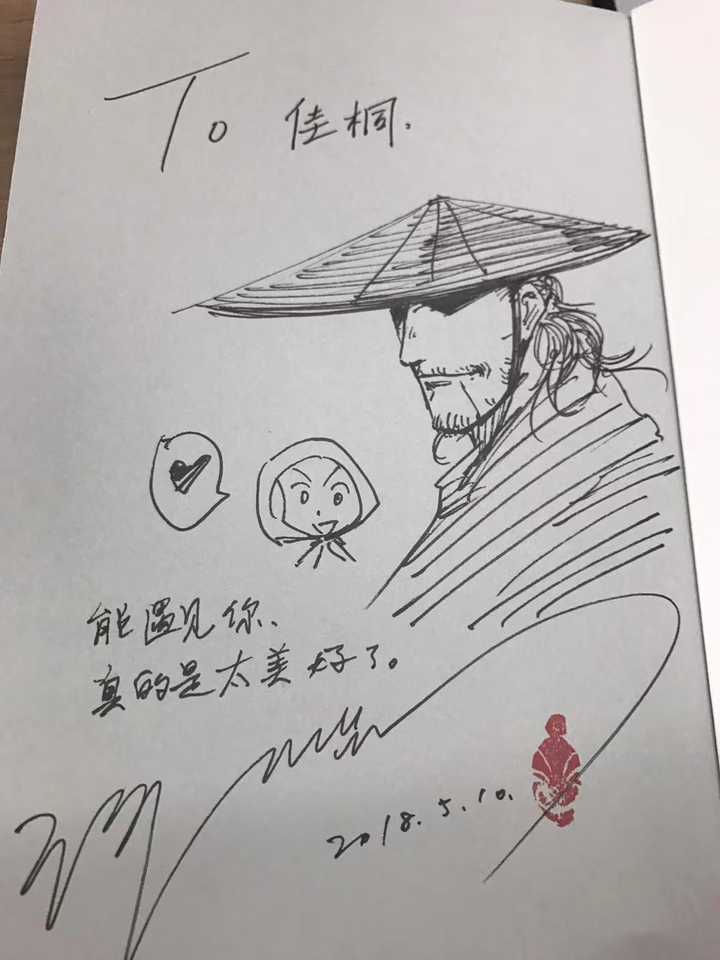 To 佳桐.
能遇见你、
真的是太美好了。
2018.5.10.